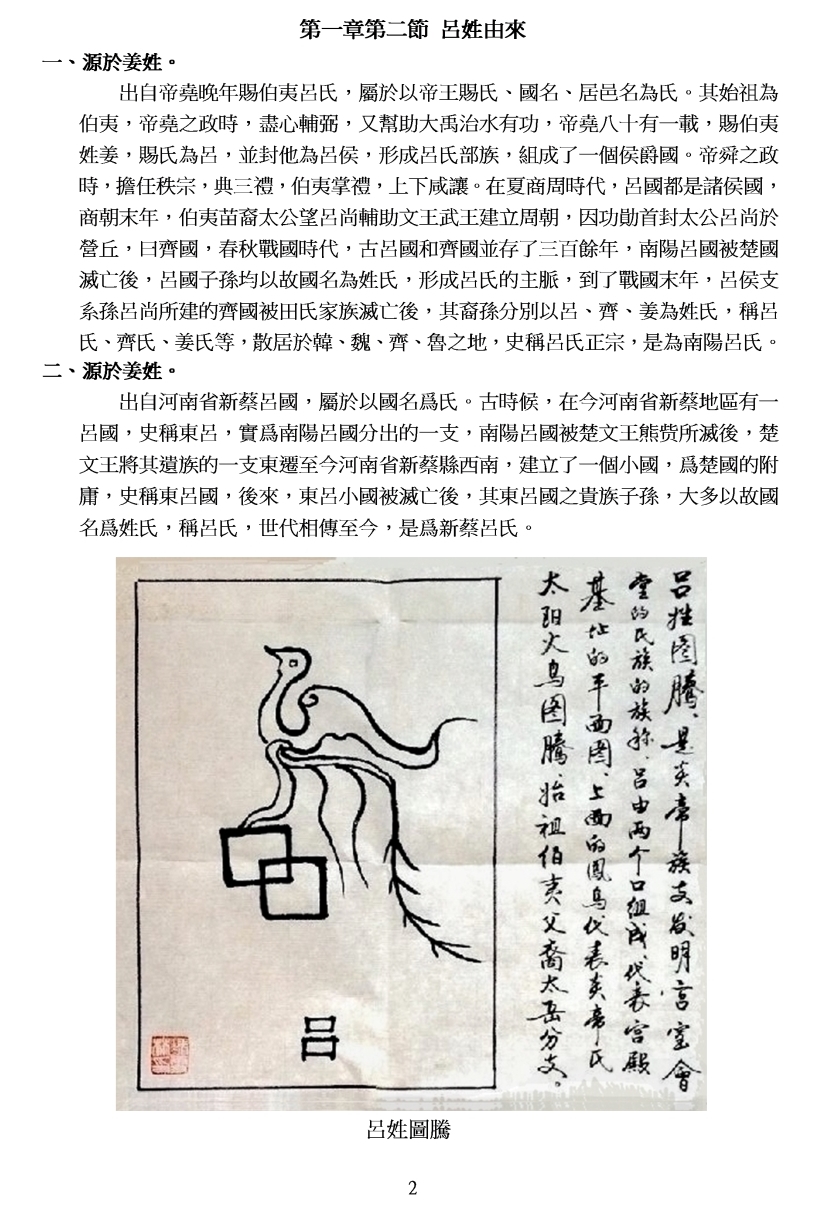 第一章第二節 呂姓由來
一、源於姜姓。
出自帝堯晚年賜伯夷呂氏，屬於以帝王賜氏、國名、居邑名為氏。其始祖為
伯夷，帝堯之政時，盡心輔弼，又幫助大禹治水有功，帝堯八十有一載，賜伯夷
姓姜，賜氏為呂，並封他為呂侯，形成呂氏部族，組成了一個侯爵國。帝舜之政
時，擔任秩宗，典三禮，伯夷掌禮，上下咸讓。在夏商周時代，呂國都是諸侯國，
商朝末年，伯夷苗裔太公望呂尚輔助文王武王建立周朝，因功勛首封太公呂尚於
營丘，曰齊國，春秋戰國時代，古呂國和齊國並存了三百餘年，南陽呂國被楚國
滅亡後，呂國子孫均以故國名為姓氏，形成呂氏的主脈，到了戰國末年，呂侯支
系孫呂尚所建的齊國被田氏家族滅亡後，其裔孫分別以呂、齊、姜為姓氏，稱呂
氏、齊氏、姜氏等，散居於韓、魏、齊、魯之地，史稱呂氏正宗，是為南陽呂氏。
二、源於姜姓。
出自河南省新蔡呂國，屬於以國名爲氏。古時候，在今河南省新蔡地區有一
呂國，史稱東呂，實爲南陽呂國分出的一支，南陽呂國被楚文王熊赀所滅後，楚
文王將其遺族的一支東遷至今河南省新蔡縣西南，建立了一個小國，爲楚國的附
庸，史稱東呂國，後來，東呂小國被滅亡後，其東呂國之貴族子孫，大多以故國
名爲姓氏，稱呂氏，世代相傳至今，是爲新蔡呂氏。
吕姓图腾、是炎帝族支发明宫室會
堂的氏族的族称、吕由两个口组成、代表宫殿
基址的平面图、上面的鳳鸟代表炎帝氏
太阳火鸟图腾、始祖伯夷父裔太岳分支。
吕
呂姓圖騰
2